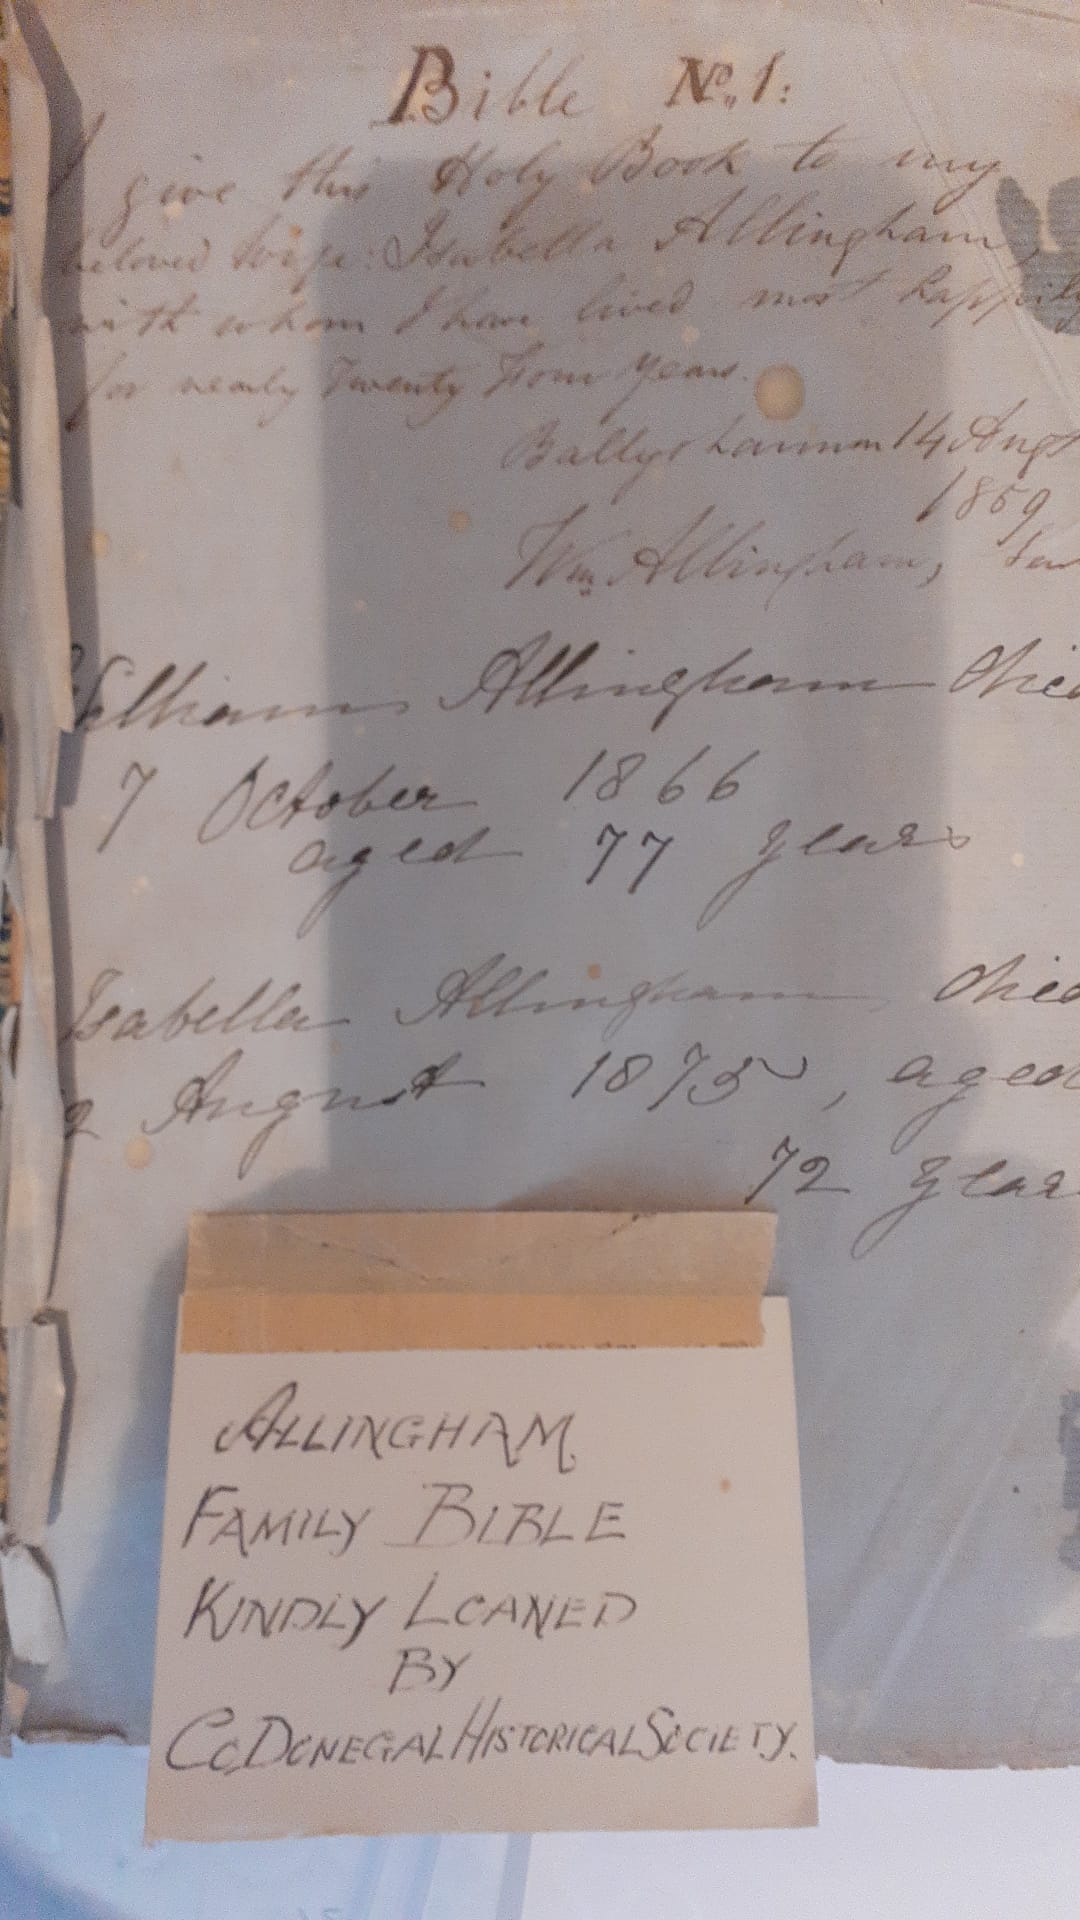 Bible No. 1:
I give this Holy Book to my
beloved Wife: Isabella Allingham,
with whom I have lived most happily
for nearly Twenty Four years.
Ballyshannon 14 Augt
1859
Wm. Allingham,
William Allingham died
7 October 1866
aged 77 years
Isabella Allingham, died
2 August 1875, aged
72 years
ALLINGHAM
FAMILY BIBLE
KINDLY LOANED
BY
CO. DONEGAL HISTORICAL SOCIETY.